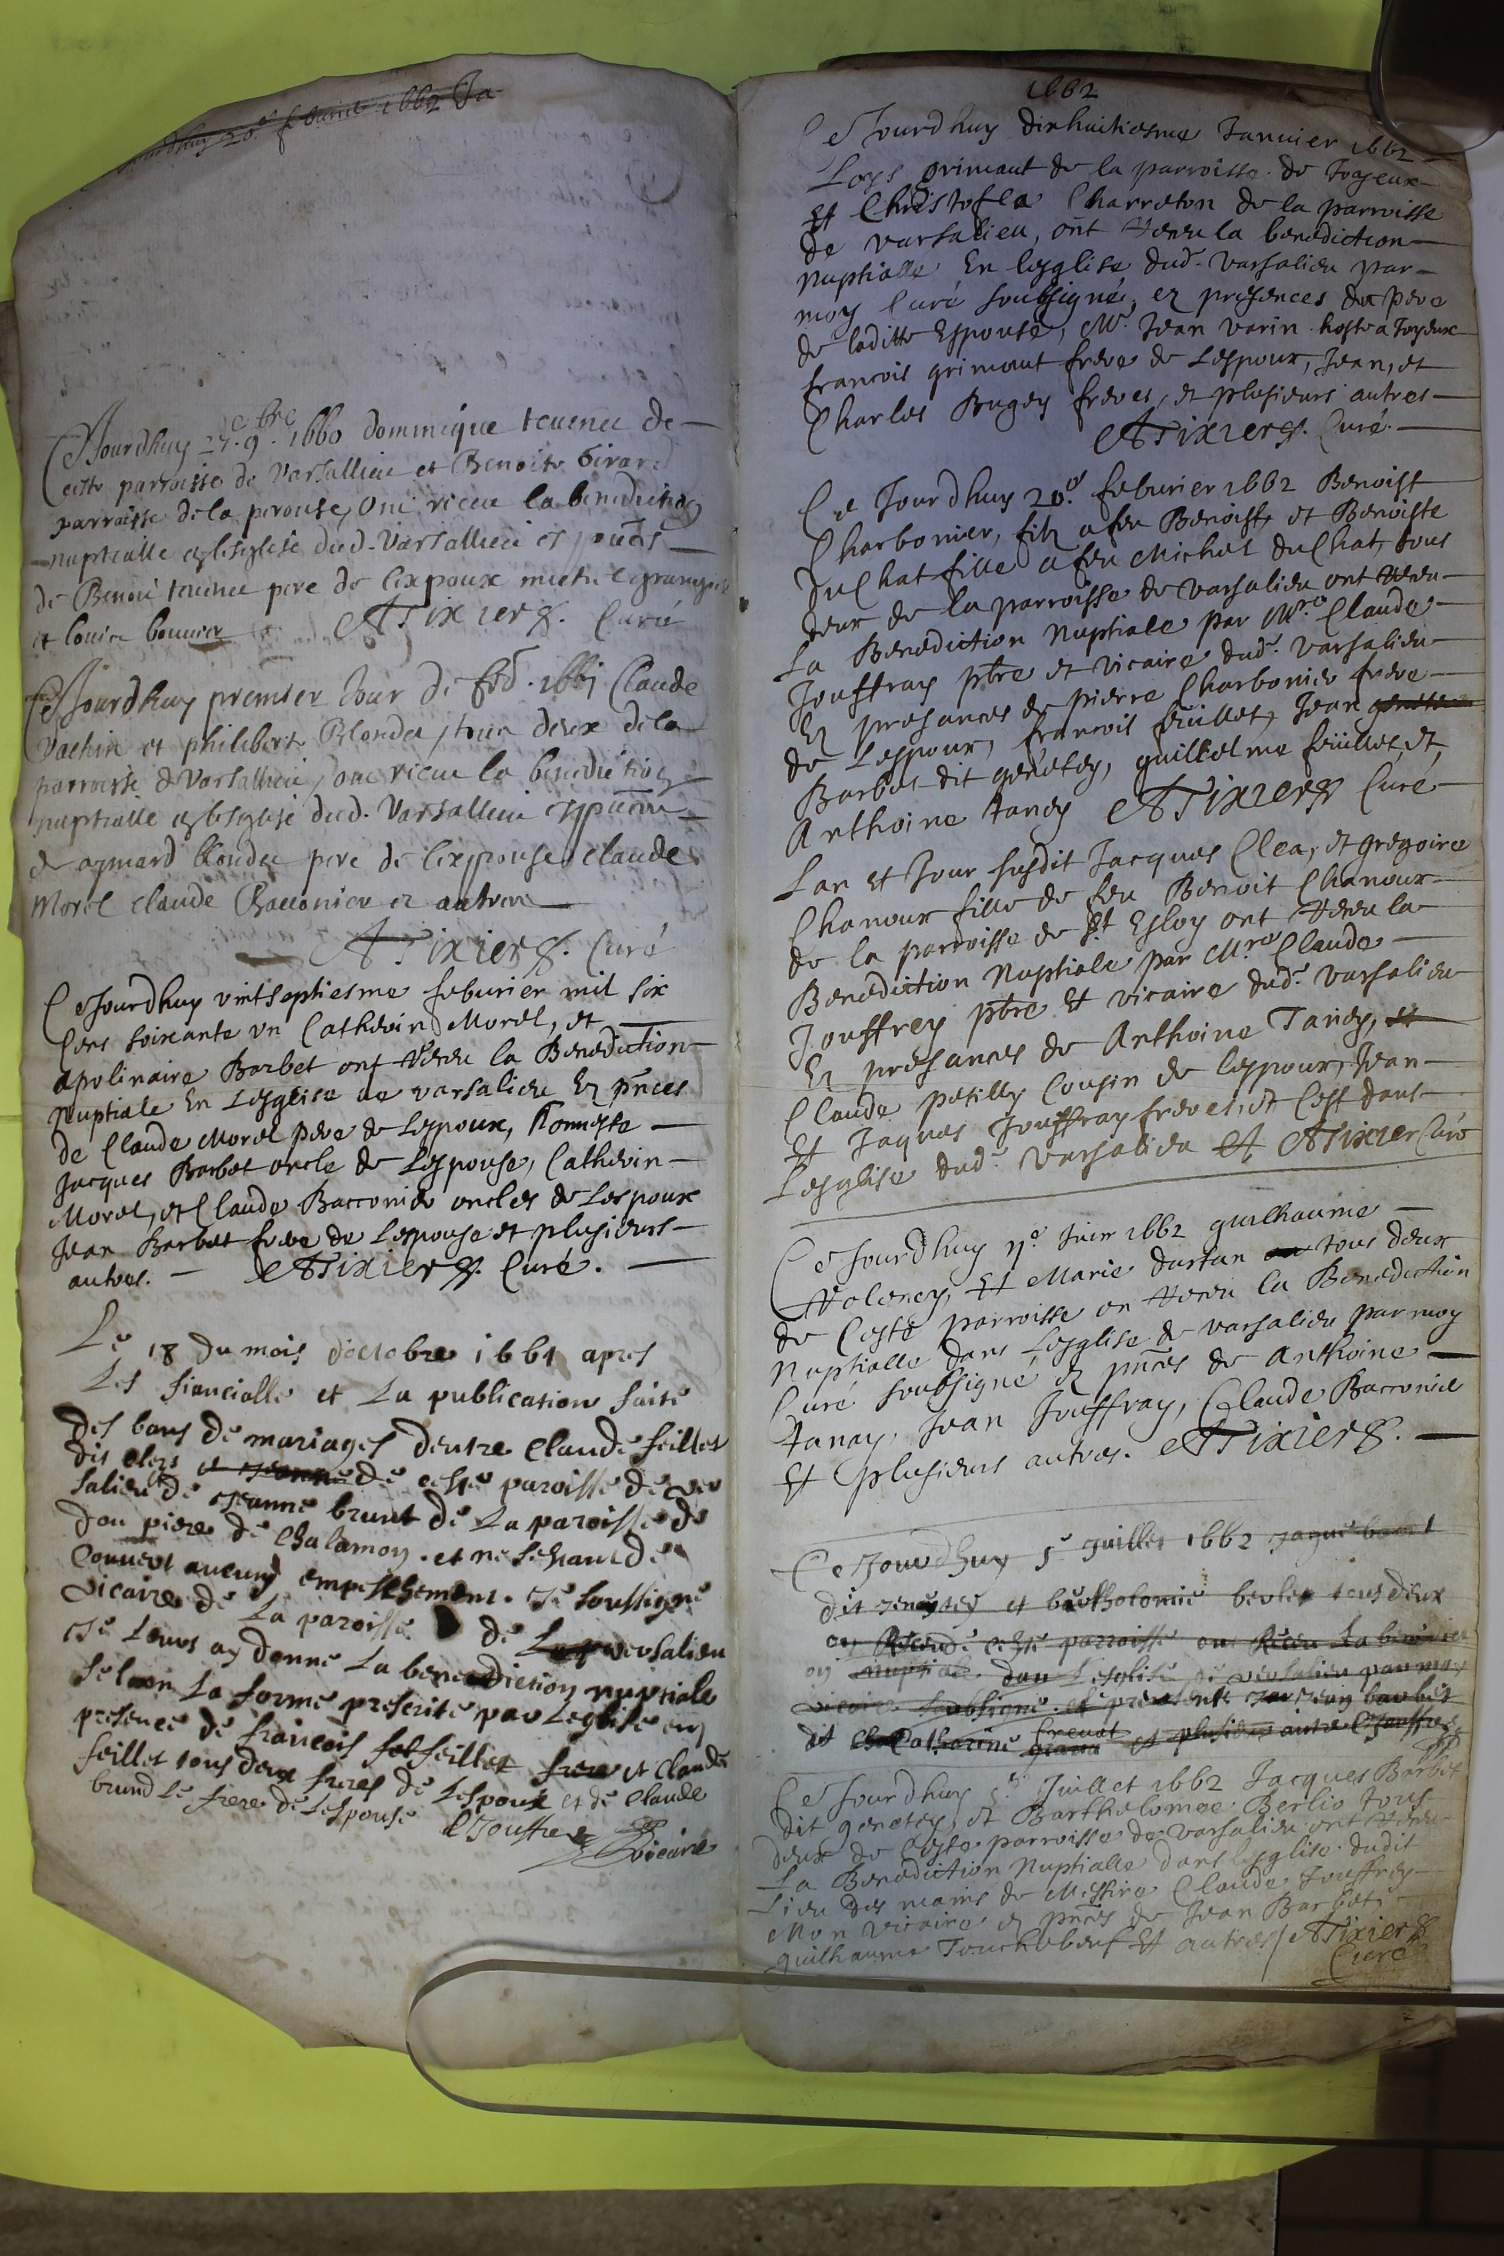 20e feburier 1662 Ja
Ce Jourdhuy 27. 9bre. 1660 dominique tevenet de
ceste parroisse de Varsallieu et Benoite Girard
parroisse dela perouse, Ont riceu la benediction
nuptialle en lesglise dud. Varsallieu es pñces
de Benoi tevenet pere de lexpoux
et louise bonnier ATixier. Curé
Ce Jourdhuy premier Jour de 1661 Claude
Vachin et philiberte Blondet, tous deux dela
parroisse de Varsallieu, ont riceu la benediction
nuptialle en lesglise dud. Varsallieu
de aymard blondet pere de lexpouse, claude
Morel claude Bacconier et autres
ATixier. Curé
Ce Jourdhuy vintseptiesme feburier mil six
Cens soixante un Catherin Morel, et
apolinaire Barbet ont Receu la Benediction
Nuptiale En Lesglise de varsalieu En pñces
de Claude Morel pere de Lespoux, honneste
Jacques Barbet oncle de Lespouse, Catherin
Morel, et Claude Bacconier oncles de Lespoux
Jean Barbet frere de Lespouse et plusieurs
autres. ATixier. Curé.
Le 18 du mois doctobre 1661 apres
Les fiancialle et La publication faite
des bans de mariages dentre Claude feillet
dit clers et Jeanne de ceste paroisse de ver
salieu de Jeanne brunt de La paroisse de
dou piere de Chalamon. et ne sestant de
Couvert aucung empeschement. Je soussigne
vicaire de La paroisse de versalieu
Je Leurs ay donne La benediction nuptiale
selon La forme prescrite par Leglise en
presence de francois feillet frere et Claude
feillet tous deux freres de Lespoux et de Claude
brund Le frere de Lespouse CJouffrey
vicaire
1662
Ce Jourdhuy dixhuitiesme Januier 1662
Loys grimaut de la parroisse de Joyeux
Et Christofla Charreton de la parroisse
de varsalieu, ont Receu la benediction
nuptialle En lesglise dud. varsalieu par
moy Curé soubsigné, en presences du pere
de laditte Espouse, Mr. Jean varin hoste a Joyeux
francois grimaut frere de Lespoux, Jean, et
Charles Bugey freres, et plusieurs autres
ATixier. Curé.
Ce Jourdhuy 20e. feburier 1662 Benoist
Charbonier, filz a feu Benoist, et Benoiste
DuChat fille a feu Michel duChat, tous
deux de la parroisse de varsalieu ont Receu
La Benediction Nuptiale par Mre Claude
Jouffray pbre et vicaire dud. varsalieu
En presances de pierre Charbonier frere
de Lespoux, francois feüillet, Jean
Barbet dit genetey, guillelme feüillet, et
Anthoine taney ATixier Curé
Lan et Jour susdit Jacques Clea, et gregoire
Chanoux fille de feu Benoit Chanoux
de la parroisse de St Esloy ont Receu la
Benediction Nuptiale par Mre Claude
Jouffrey pbre Et vicaire dud. varsalieu
En presances de Anthoine Taney, et
Claude petilly Cousin de lespoux, Jean
Et Jaques Jouffray freres, et Cest dans
Lesglise dud. varsalieu ATixier Curé
Ce Jourdhuy 11e Juin 1662 guilhaume
Voleney, Et Marie dartan tous deux
de Ceste parroisse on Receu la Benediction
Nuptialle dans Lesglise de varsalieu par moy
Curé soubsigné en pñces de Anthoine
tanay, Jean Jouffray, Claude Bacconier
Et plusieurs autres. ATixier.
Ce Jourdhuy 5e Juillet 1662 Jaque
dit Jenestey et bartholomie berlet tous deux
de ceste parroisse ont Receu La benedicti
on nuptial. dan Lesglise de versalieu par moy
vicaire soubsigne. et present Jan barbet
dit Catharine et plusieur autre CJouffrey
Ce Jourdhuy 5e Juillet 1662 Jacques Barbet
dit genetey, et Bartholomee Berlio Tous
deux de Ceste parroisse de varsalieu ont Receu
La Benediction Nuptialle dans lesglise dudit
Lieu des mains de Messire Claude Jouffrey
Mon Vicaire en pñces de Jean Barbet
guilhaume Touchebeuf Et autres / ATixier
Curé